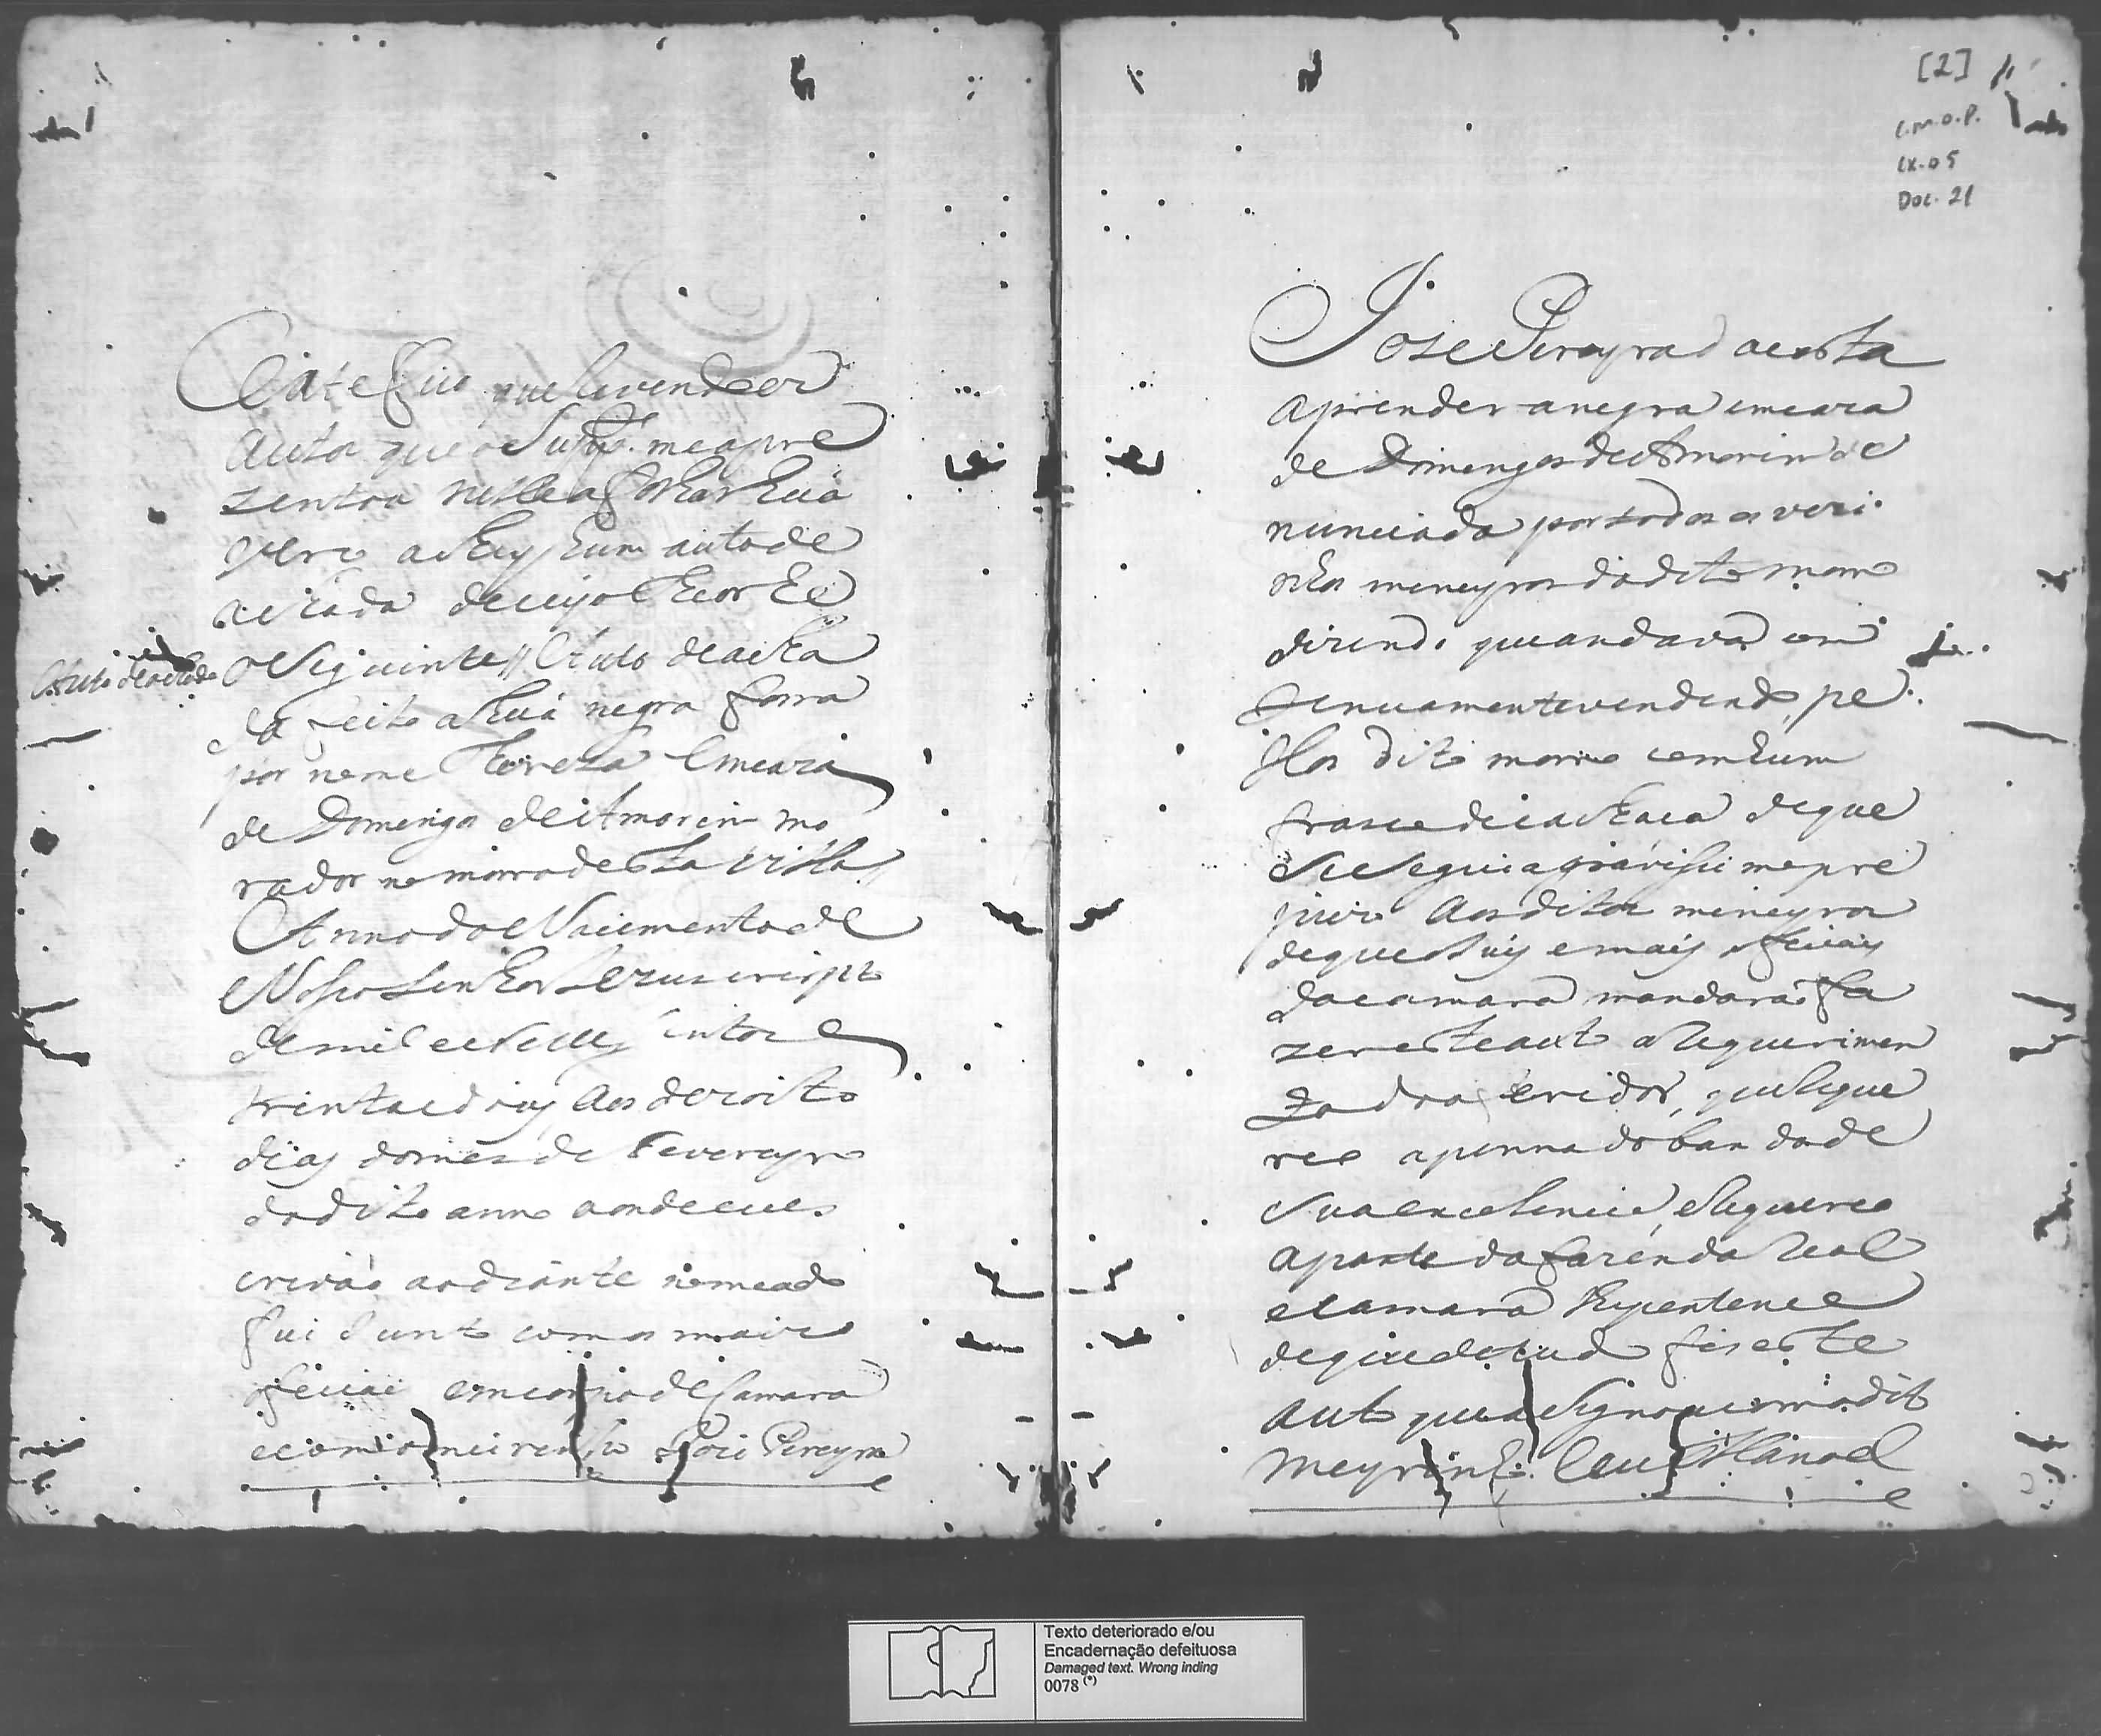 Certefico que revendo os
autos que o Supp.e me apre
zentou nelles a folhas hua
verço achey hum auto de
achada de cujo theor he
Auto de achada
o Seguinte // Auto de acha
da feito a huá negra forra
por nome Thereza em caza
de Domingos de Amorim mo
rador no morro desta villa
Anno do Nacimento de
Nosso Senhor Jezus cristo
de mil e sette centos e
trinta e dois aos dezoito
dias do mes de Fevereyro
do dito anno aonde eu es
crivão ao diante nomeado
fui Junto com os mais o
ficiais em corpo de Camara
e com o meirinho Joze Pereyra
[2]
C.M.O.P.
CX. 05
Doc. 21
Joze Pereyra da costa
aprender a negra em caza
de Domingos de Amorim de
nunciada por todos os vezi
nhos mineyros do dito morro
dizendo que andava con
tenuamente vendendo pe
llos dito morro com hum
frasco de cachaca de que
se seguia gravissimo pre
juizo aos ditos mineyros
de que o Juis e mais oficiais
da camara mandarão fa
zer este auto a Requerimen
to dos feridos, que Reque
reo a penna do bando de
Sua encelencia, e Requereo
a parte da fazenda Real
e camara lhe pertence
de que de tudo fis este
auto que asignou com o dito
meyrinho e eu Manoel
Texto deteriorado e/ou
Encadernação defeituosa
Damaged text. Wrong inding
0078 (*)